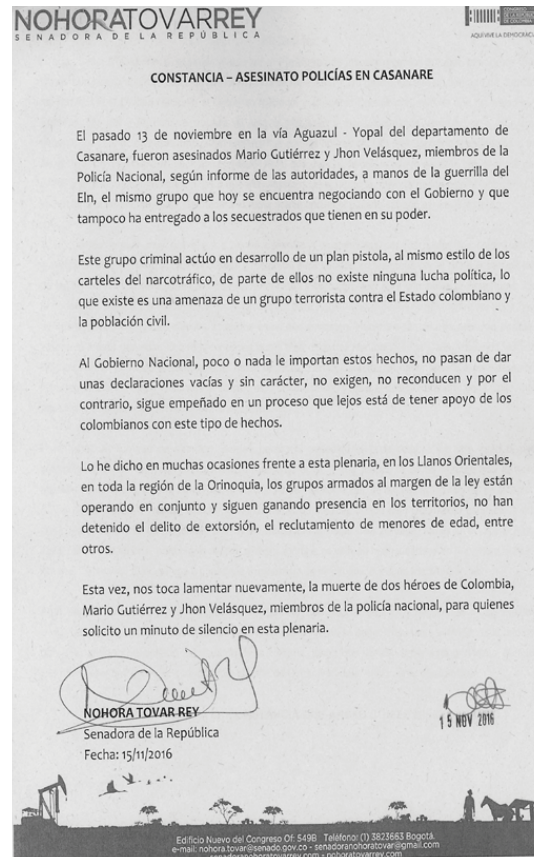 NOHORATOVARREY
SENADORA DE LA REPÚBLICA
AQUÍ VIVE LA DEMOCRACIA
CONSTANCIA – ASESINATO POLICÍAS EN CASANARE
El pasado 13 de noviembre en la vía Aguazul - Yopal del departamento de
Casanare, fueron asesinados Mario Gutiérrez y Jhon Velásquez, miembros de la
Policía Nacional, según informe de las autoridades, a manos de la guerrilla del
Eln, el mismo grupo que hoy se encuentra negociando con el Gobierno y que
tampoco ha entregado a los secuestrados que tienen en su poder.
Este grupo criminal actúo en desarrollo de un plan pistola, al mismo estilo de los
carteles del narcotráfico, de parte de ellos no existe ninguna lucha política, lo
que existe es una amenaza de un grupo terrorista contra el Estado colombiano y
la población civil.
Al Gobierno Nacional, poco o nada le importan estos hechos, no pasan de dar
unas declaraciones vacías y sin carácter, no exigen, no reconducen y por el
contrario, sigue empeñado en un proceso que lejos está de tener apoyo de los
colombianos con este tipo de hechos.
Lo he dicho en muchas ocasiones frente a esta plenaria, en los Llanos Orientales,
en toda la región de la Orinoquia, los grupos armados al margen de la ley están
operando en conjunto y siguen ganando presencia en los territorios, no han
detenido el delito de extorsión, el reclutamiento de menores de edad, entre
otros.
Esta vez, nos toca lamentar nuevamente, la muerte de dos héroes de Colombia,
Mario Gutiérrez y Jhon Velásquez, miembros de la policía nacional, para quienes
solicito un minuto de silencio en esta plenaria.
NOHORA TOVAR REY
Senadora de la República
Fecha: 15/11/2016
15 NOV 2016
Edificio Nuevo del Congreso Of: 549B Teléfono: (1) 3823663 Bogotá.
e-mail: nohora.tovar@senado.gov.co - senadoranohoratovar@gmail.com
senadoranohoratovarrey.com - nohoratovarrey.com